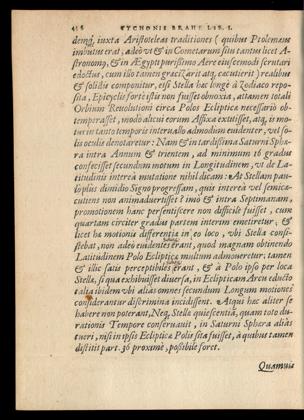 456 TYCHONIS BRAHE LIB. I.
demq́; iuxta Aristoteleas traditiones (quibus Ptolemæus
imbutus erat, adeo vt & in Cometarum situ tantus licet A-
stronomꝰ, & in Ægypti purissimo Aere eiuscemodi scrutari
edoctus, cum illo tamen græcizarit atq́; cæcutierit) realibus
& solidis componitur, etsi Stella hæc longè à Zodiaco repo-
sita, Epicyclis fortè istis non fuisset obnoxia, attamen totali
Orbium Reuolutioni circa Polos Eclipticæ necessario ob-
temperasset, modo alicui eorum Affixa extitisset, atq́; is mo-
tus in tanto temporis interuallo admodum euidenter, vel so-
lis oculis denotaretur: Nam & in tardissima Saturni Sphæ-
ra intra Annum & trientem, ad minimum 16 gradus
confecisset secundum motum in Longitudinem, vt de La-
titudinis interea mutatione nihil dicam: At Stellam pau-
lo plus dimidio Signo progressam, quis interea vel semicæ-
cutiens non animaduertisset? imò & intra Septimanam,
promotionem hanc persentiscere non difficile fuisset, cum
quartam circiter gradus partem interim emetiretur, &
licet hæc motionis differentia in eo loco, vbi Stella consi-
stebat, non adeo euidens erant, quod magnam obtinendo
Latitudinem Polo Eclipticæ multum admoueretur: tamen
& illic satis perceptibiles erant, & à Polo ipso per loca
Stellæ, si qua exhibuisset diuersa, in Eclipticam Arcu educto
talia ibidem vbi alias omnes secundum Longum motiones
considerantur discrimina incidissent. Atqui hæc aliter se
habere non poterant, Neq́; Stella quiescentiã, quam toto du-
rationis Tempore conseruauit, in Saturni Sphæra aliàs
tueri, nisi in ipsis Eclipticæ Polis sita fuisset, à quibus tamen
distitit part. 36 proximè, possibile foret.
Quamuis